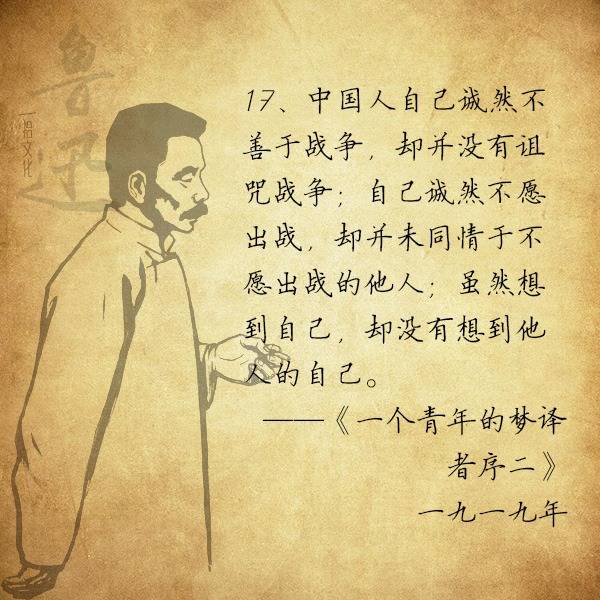 鲁迅
拾文化
17、中国人自己诚然不
善于战争，却并没有诅
咒战争；自己诚然不愿
出战，却并未同情于不
愿出战的他人；虽然想
到自己，却没有想到他
人的自己。
——《一个青年的梦译
者序二》
一九一九年